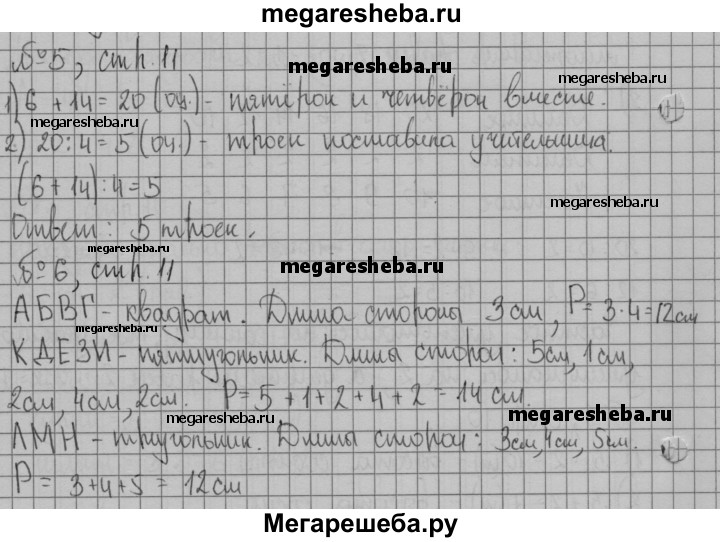 megaresheba.ru
№5, стр. 11
megaresheba.ru
megaresheba.ru
1) 6 + 14 = 20 (оц.) - пятёрок и четвёрок вместе.
megaresheba.ru
2) 20 : 4 = 5 (оц.) - троек поставила учительница.
(6 + 14) : 4 = 5
megaresheba.ru
Ответ: 5 троек.
megaresheba.ru
№6, стр. 11
megaresheba.ru
АБВГ - квадрат. Длина стороны 3 см, P = 3 · 4 = 12 см
megaresheba.ru
КДЕЗИ - пятиугольник. Длины сторон: 5см, 1 см,
2см, 4см, 2см. P = 5 + 1 + 2 + 4 + 2 = 14 см.
megaresheba.ru
megaresheba.ru
ЛМН - триугольник. Длины сторон: 3см, 4см, 5см.
P = 3+4+5 = 12 см
Мегарешеба.ру